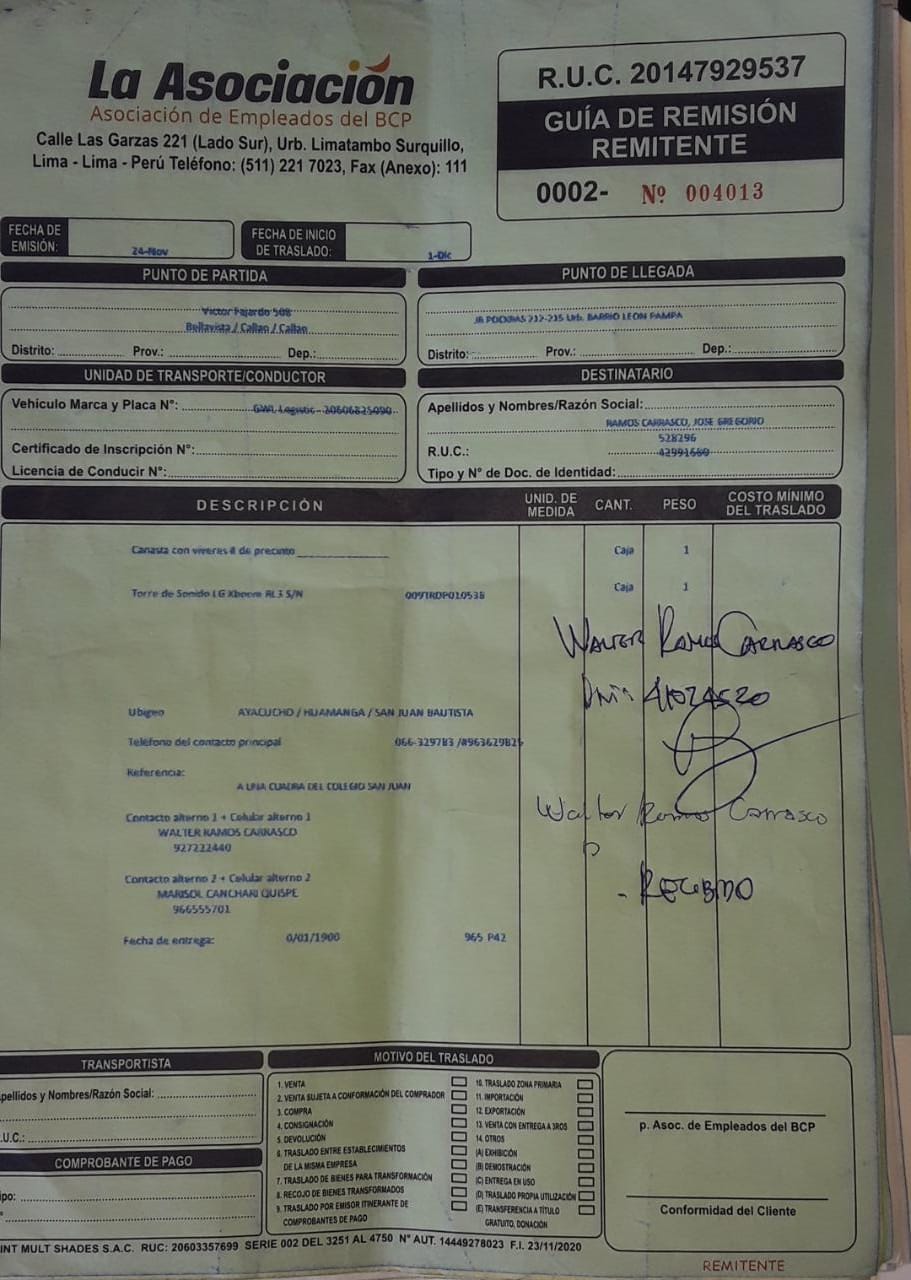 La Asociación
Asociación de Empleados del BCP
Calle Las Garzas 221 (Lado Sur), Urb. Limatambo Surquillo,
Lima - Lima - Perú Teléfono: (511) 221 7023, Fax (Anexo): 111
R.U.C. 20147929537
GUÍA DE REMISIÓN
REMITENTE
0002- Nº 004013
FECHA DE EMISIÓN: 24-Nov
FECHA DE INICIO DE TRASLADO: 1-Dic
PUNTO DE PARTIDA
Victor Fajardo 508
Bellavista / Callao / Callao
Distrito: Prov.: Dep.:
PUNTO DE LLEGADA
JR POCKRAS 212-215 Urb. BARRIO LEON PAMPA
Distrito: Prov.: Dep.:
UNIDAD DE TRANSPORTE/CONDUCTOR
Vehículo Marca y Placa N°: GWL Logistic - 20606825090
Certificado de Inscripción N°:
Licencia de Conducir N°:
DESTINATARIO
Apellidos y Nombres/Razón Social:
RAMOS CARRASCO, JOSE GREGORIO
528296
R.U.C.: 42991680
Tipo y N° de Doc. de Identidad:
DESCRIPCIÓN UNID. DE MEDIDA CANT. PESO COSTO MÍNIMO DEL TRASLADO
Canasta con viveres # de precinto Caja 1
Torre de Sonido LG Xboom RL3 S/N Caja 1
WALTER RAMOS CARRASCO
Ubigeo AYACUCHO / HUAMANGA / SAN JUAN BAUTISTA
Teléfono del contacto principal 066-329783 /#96362982
Referencia:
A UNA CUADRA DEL COLEGIO SAN JUAN
Contacto alterno 1 + Celular alterno 1
WALTER RAMOS CARRASCO
927222440
Walter Ramos Carrasco
Contacto alterno 2 + Celular alterno 2
MARISOL CANCHARI QUISPE
966555701
- RECIBIDO
Fecha de entrega: 0/01/1900 965 P42
TRANSPORTISTA
pellidos y Nombres/Razón Social:
.U.C.:
COMPROBANTE DE PAGO
ipo:
MOTIVO DEL TRASLADO
1. VENTA
2. VENTA SUJETA A CONFORMACIÓN DEL COMPRADOR
3. COMPRA
4. CONSIGNACIÓN
5. DEVOLUCIÓN
6. TRASLADO ENTRE ESTABLECIMIENTOS
DE LA MISMA EMPRESA
7. TRASLADO DE BIENES PARA TRANSFORMACIÓN
8. RECOJO DE BIENES TRANSFORMADOS
9. TRASLADO POR EMISOR ITINERANTE DE
COMPROBANTES DE PAGO
10. TRASLADO ZONA PRIMARIA
11. IMPORTACIÓN
12. EXPORTACIÓN
13. VENTA CON ENTREGA A 3ROS
14. OTROS
(A) EXHIBICIÓN
(B) DEMOSTRACIÓN
(C) ENTREGA EN USO
(D) TRASLADO PROPIA UTILIZACIÓN
(E) TRANSFERENCIA A TÍTULO
GRATUITO, DONACIÓN
p. Asoc. de Empleados del BCP
Conformidad del Cliente
INT MULT SHADES S.A.C. RUC: 20603357699 SERIE 002 DEL 3251 AL 4750 N° AUT. 14449278023 F.I. 23/11/2020
REMITENTE